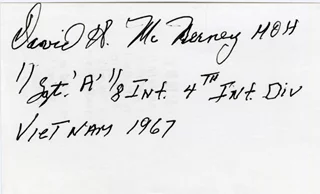 David H. McNerney MOH
1/Sgt. 'A' 1/8 Inf. 4TH Inf. Div
VIETNAM 1967